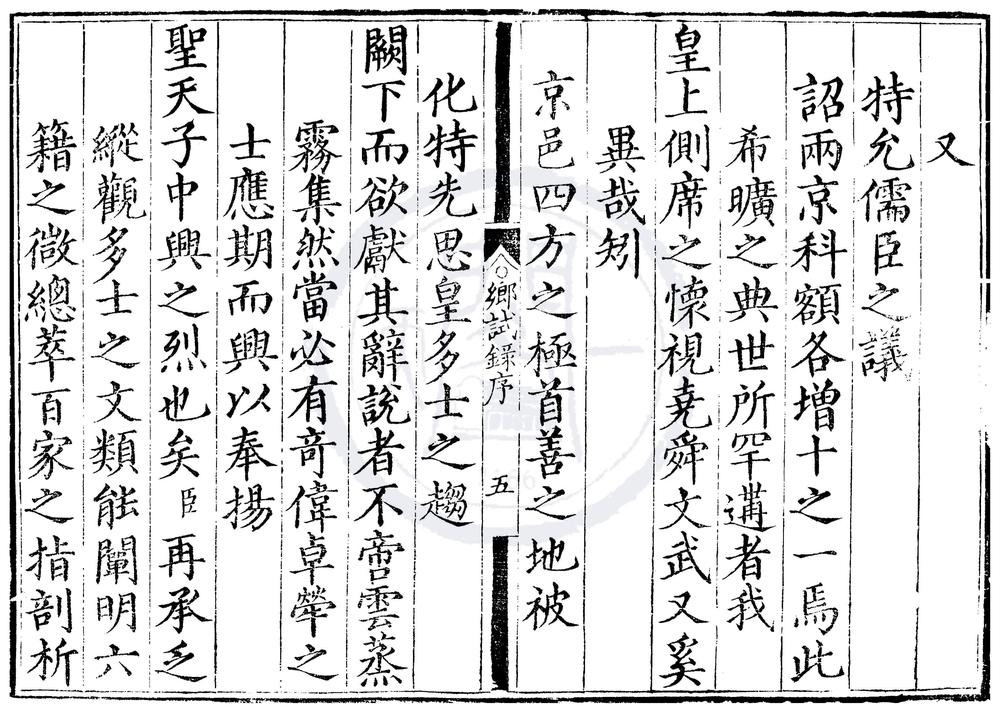 又
特允儒臣之議
詔兩京科額各增十之一焉此
希曠之典世所罕遘者我
皇上側席之懷視堯舜文武又奚
異哉矧
京邑四方之極首善之地被
鄉試錄序 五
化特先思皇多士之趨
闕下而欲獻其辭說者不啻雲蒸
霧集然當必有竒偉卓犖之
士應期而興以奉揚
聖天子中興之烈也矣臣再承乏
縱觀多士之文類能闡明六
籍之微總萃百家之指剖析